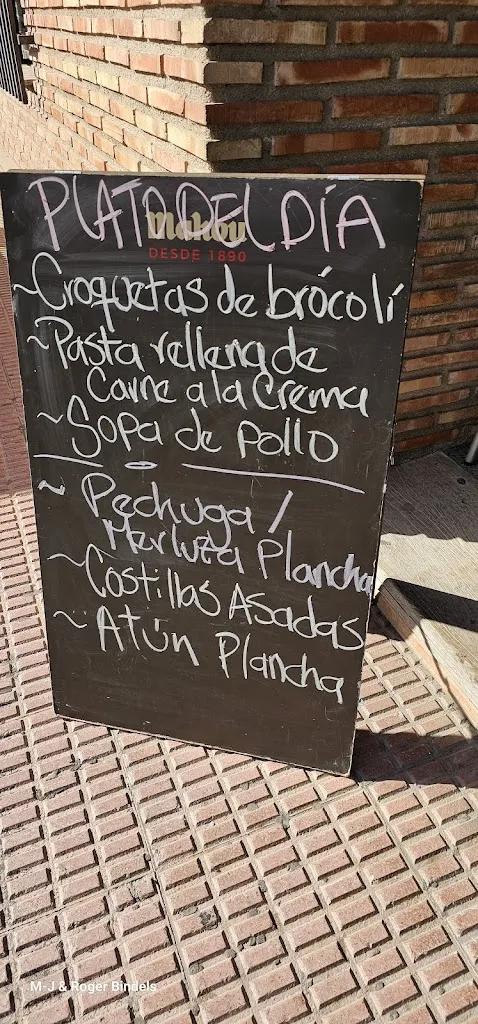 PLATO DEL DÍA
Mahou
DESDE 1890
~Croquetas de brócolí
~Pasta rellena de
Carne a la Crema
~Sopa de Pollo
~ Pechuga /
Merluza Plancha
~Costillas Asadas
~Atún Plancha
M-J & Roger Bindels